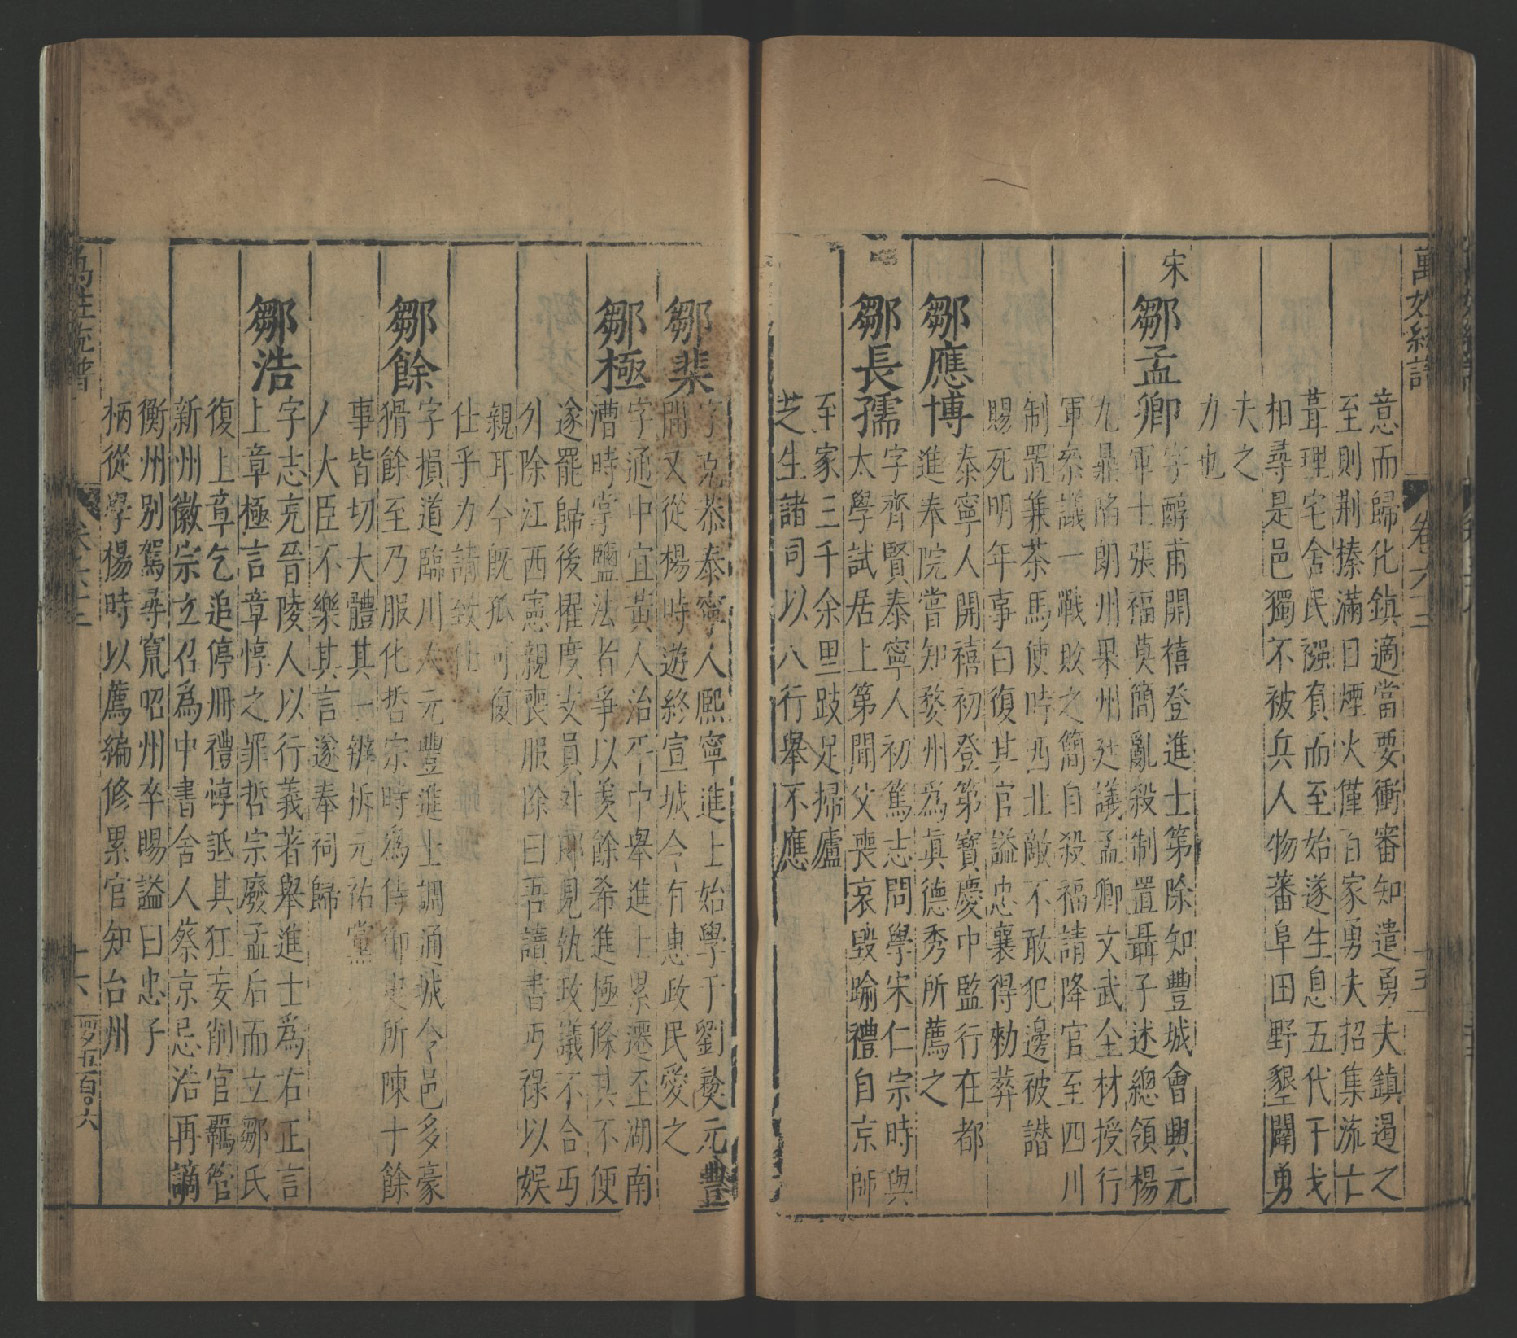 萬姓統譜
卷六十二
十五
意而歸化鎮適當要衝審知遣勇夫鎮遏之
至則荆榛滿目煙火僅百家勇夫招集流亡
葺理宅舍民强負而至始遂生息五代干戈
相尋是邑獨不被兵人物蕃阜田野墾闢勇
夫之
力也
宋
鄒孟卿
字醇甫開禧登進士第除知豐城會興元
軍士張福莫簡亂殺制置聶子述總領楊
九鼎陷閬州果州廷議孟卿文武全材授行
軍叅議一戰敗之簡自殺福請降官至四川
制置兼茶馬使時西北敵不敢犯邊被譖
賜死明年事白復其官謚忠襄得勑葬
鄒應博
泰寧人開禧初登第寶慶中監行在都
進奏院嘗知婺州爲真德秀所薦之
鄒長孺
字齊賢泰寧人初篤志問學宋仁宗時與
太學試居上第聞父喪哀毀踰禮自京師
至家三千余里跣足掃廬
芝生諸司以八行舉不應
鄒棐
字克恭泰寧人熙寧進士始學于劉彝元豐
間又從楊時遊終宣城令有惠政民愛之
鄒極
字通中宜黃人治平中舉進士累遷至湖南
漕時掌鹽法者爭以羨餘希進極條其不便
遂罷歸後擢度支員外郎見執政議不合丏
外除江西憲親喪服除曰吾讀書丏祿以娱
親耳今旣孤可復
仕乎力請致仕
鄒餘
字損道臨川人元豐進士調通城令邑多豪
猾餘至乃服化哲宗時爲侍御史所陳十餘
事皆切大體其一辨拆元祐黨
人大臣不樂其言遂奉祠歸
鄒浩
字志亮晉陵人以行義著舉進士為右正言
上章極言章惇之罪哲宗廢孟后而立鄒氏
復上章乞追停冊禮惇詆其狂妄削官羈管
新州徽宗立召爲中書舍人蔡京忌浩再謫
衡州别駕尋竄昭州卒賜謚曰忠子
柄從學楊時以薦編修累官知台州
萬姓統譜
卷六十二
十六
四百六